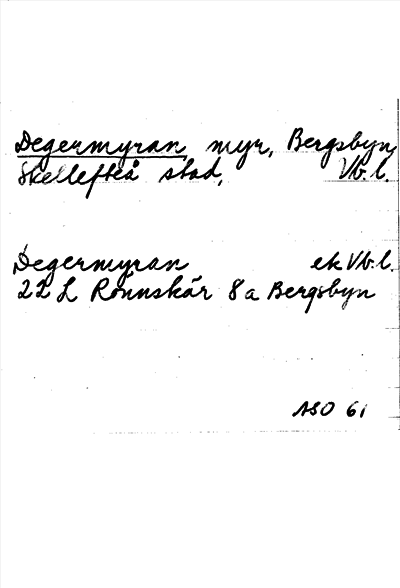 Degermyran, myr, Bergsbyn,
Skellefteå stad, Vb. l.
Degermyran ek Vb. l.
22 L Rönnskär 8a Bergsbyn
ASO 61